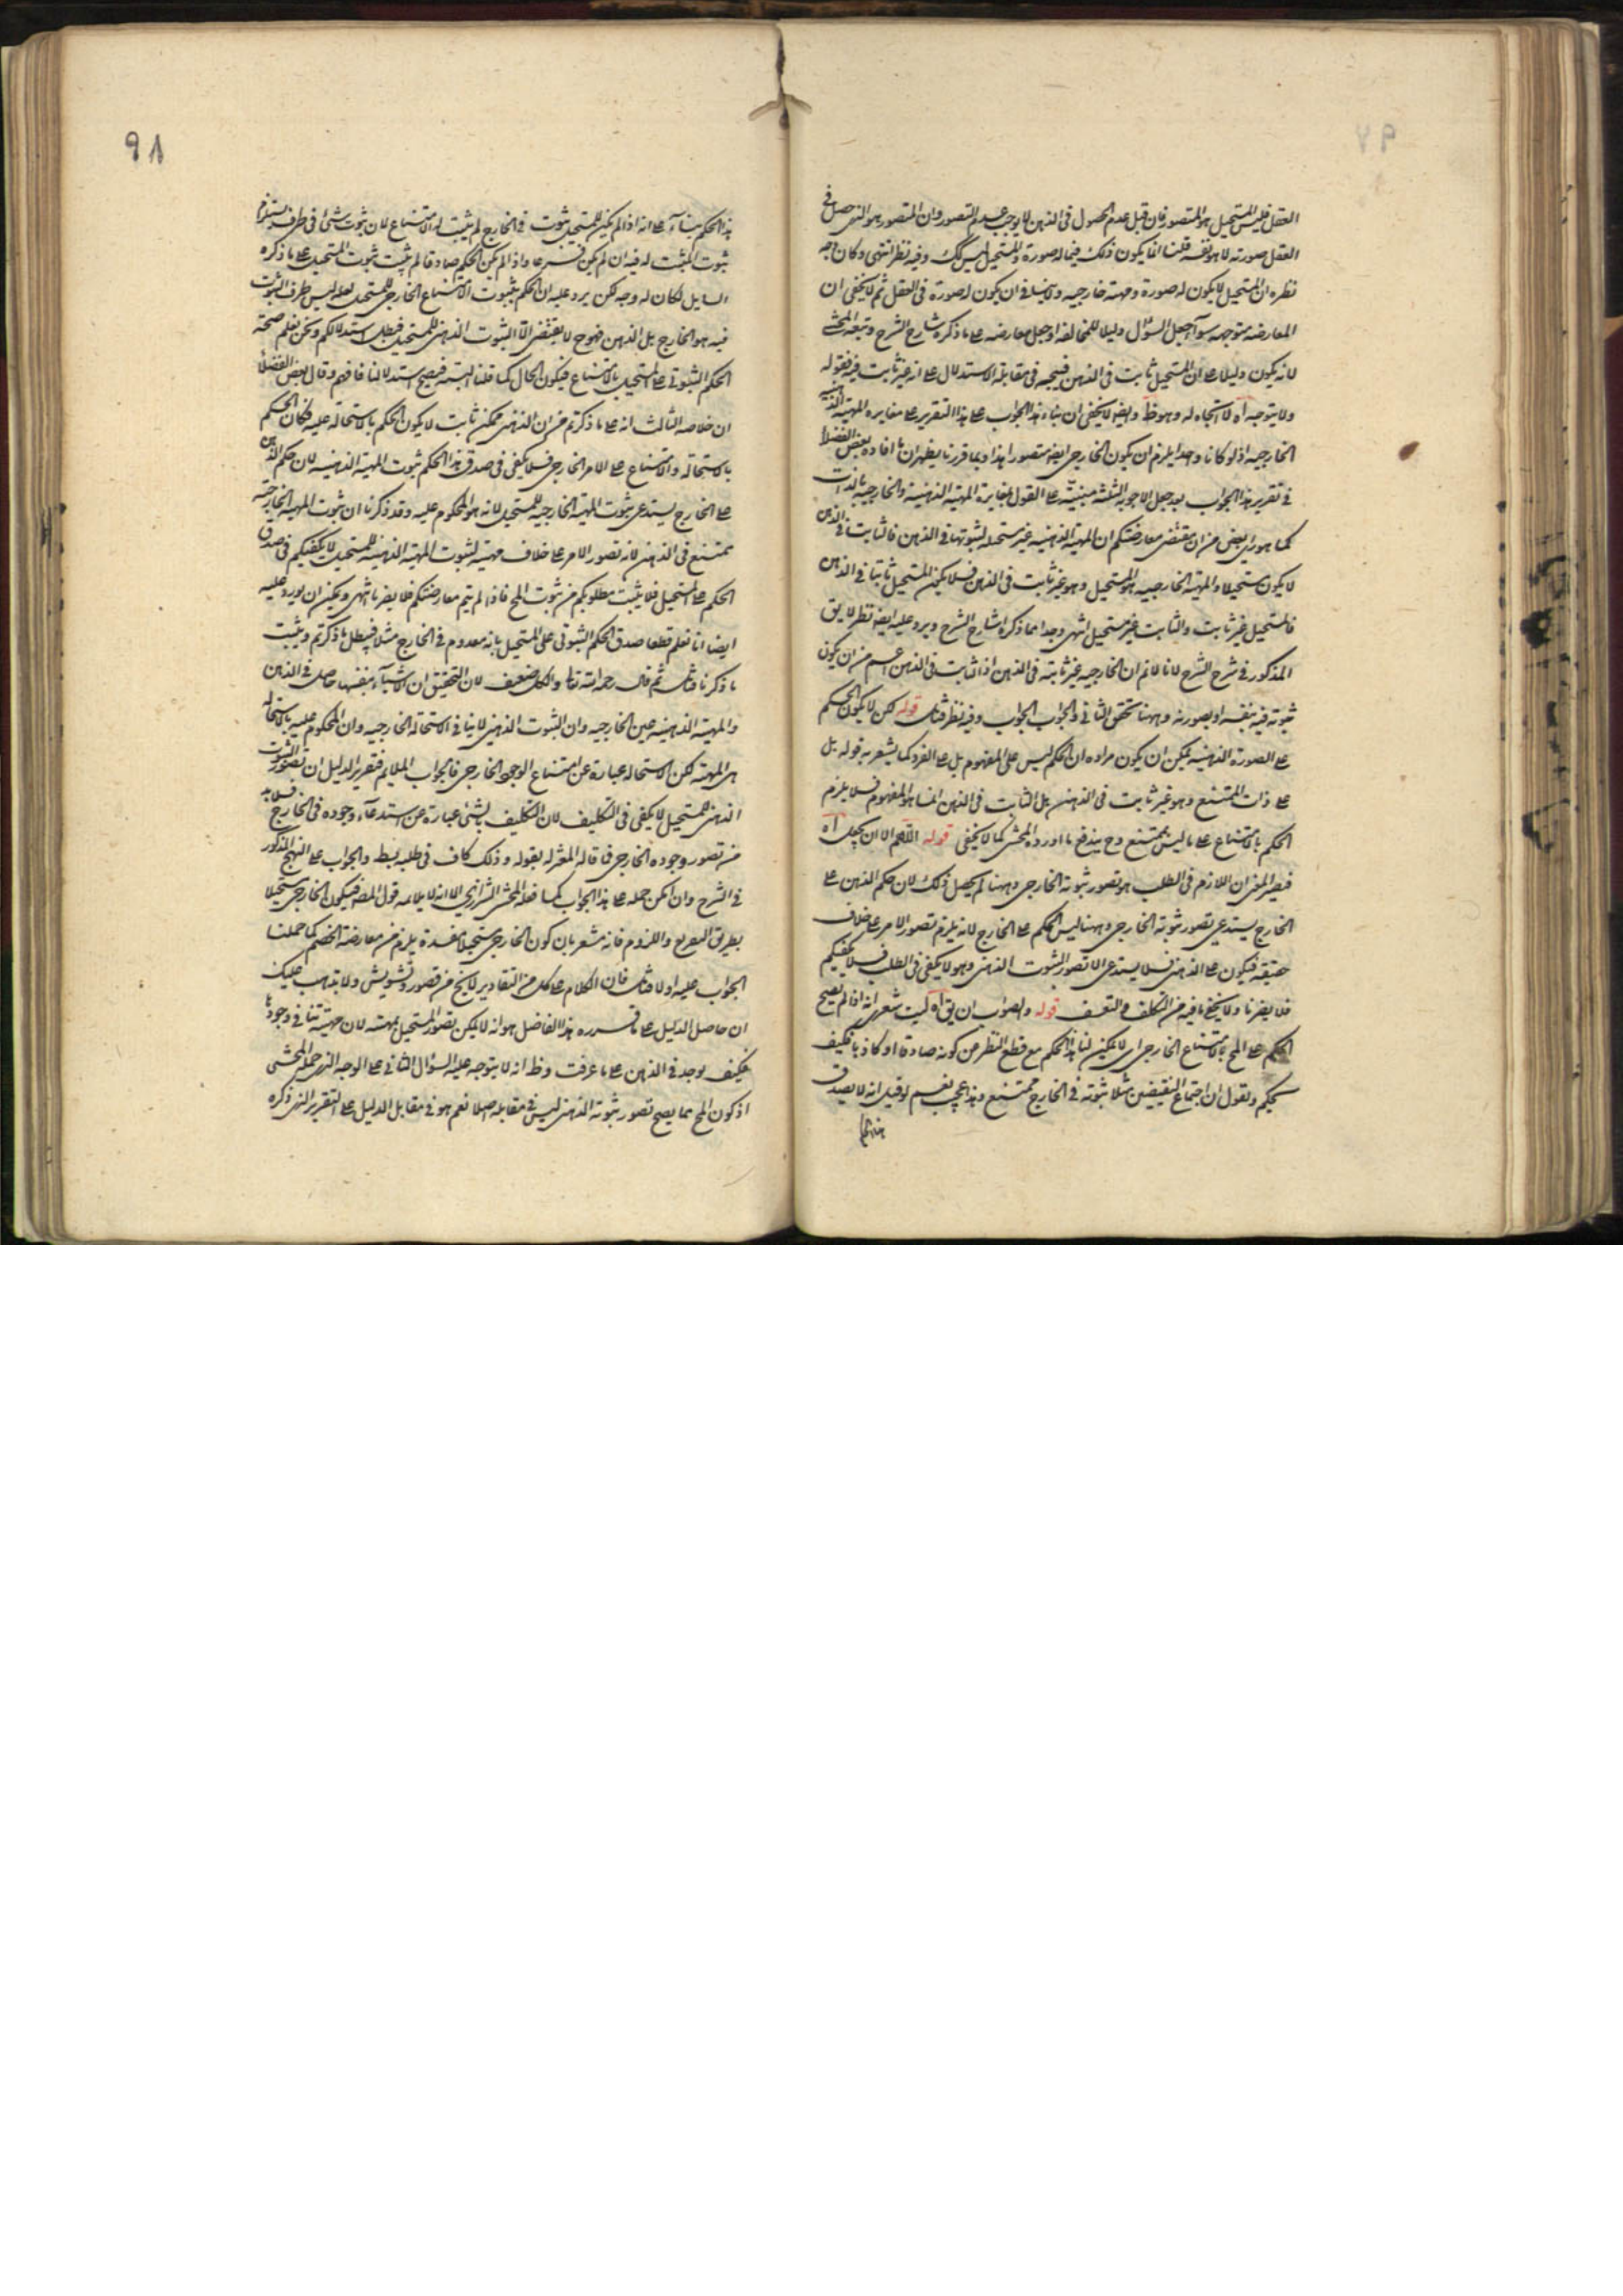 العقل فليس المستحيل هو المتصور فان قيل عدم الحصول فى الذهن لا يوجب عدم التصور وان المتصور هو الذى حصل فى
العقل صورته لا هو نفسه قلنا انما يكون ذلك فيما له صورة والمستحيل ليس كك وفيه نظر انتهى وكان وجه
نظره ان المستحيل لا يكون له صورة ومهية خارجيه ولا ينافى ان يكون له صورة فى العقل ثم لا يخفى ان
المعارضه متوجهه سوآء جعل السؤال دليلا للمخالف او جعل معارضه على ما ذكره شارح الشرح وتبعه المحشى
لانه يكون دليلا على ان المستحيل ثابت فى الذهن فيتجه فى مقابلة الاستدلال على انه غير ثابت فيه فقوله
ولا يتوجه اه لا اتجاه له وهو ظ وايضا لا يخفى ان بناء هذا الجواب على هذا التقرير على مغايره المهية الذهنيه
الخارجيه اذ لو كانا واحدا يلزم ان يكون الخارجى ايضا متصورا هذا وبما قررنا يظهر ان ما افاده بعض الفضلا
فى تقرير هذا الجواب بعد جعل الاجوبه الثلثه مبنية على القول بمغايرة المهية الذهنية والخارجيه بالذات
كما هو راى بعض من ان مقتضى معارضتكم ان المهية الذهنيه غير مستحيله لثبوتها فى الذهن فالثابت فى الذهن
لا يكون مستحيلا والمهية الخارجيه هو المستحيل وهو غير ثابت فى الذهن فلا يكون المستحيل ثابتا فى الذهن
فالمستحيل غير ثابت والثابت غير مستحيل انتهى وجدا مما ذكره شارح الشرح ويرد عليه ايضا نظر لا يق
المذكور فى شرح الشرح لانا لا نم ان الخارجيه غير ثابته فى الذهن اذ الثابت فى الذهن اعم من ان يكون
ثبوته فيه بنفسه او بصورته وههنا تحقق الثانى والجواب الجواب وفيه نظر فتامل قوله لكن لا يكون الحكم
على الصورة الذهنيه يمكن ان يكون مراده ان الحكم ليس على المفهوم بل على الفرد كما يشعر به قوله بل
على ذات الممتنع وهو غير ثابت فى الذهن بل الثابت فى الذهن انما هو المفهوم فلا يلزم
الحكم بالامتناع على ما ليس بممتنع وح يندفع ما اورده المحشى كما لا يخفى قوله اللهم الا ان يجعل اه
فيصير المعنى ان اللازم فى الطلب هو تصور ثبوته الخارجى وههنا لم يحصل ذلك لان حكم الذهن على
الخارج يستدعى تصور ثبوته الخارجى وههنا ليس الحكم على الخارج لانه يلزم تصور الامر على خلاف
حقيقته فيكون على الذهنى فلا يستدعى الا تصور الثبوت الذهنى وهو لا يكفى فى الطلب فلا يكفيكم
فلا يضرنا ولا يخفى ما فيه من التكلف والتعسف قوله والصواب ان يق اه ليت شعرى انه اذا لم يصح
الحكم على المح بالامتناع الخارجى اى لا يمكن لنا هذا الحكم مع قطع النظر عن كونه صادقا او كاذبا فكيف
نحكم ونقول ان اجتماع النقيضين مثلا ثبوته فى الخارج ممتنع وهذا عجيب نعم لو قيل انه لا يصدق
هذا الحكم
٩٨
هذا الحكم بنآء على انه اذا لم يكن للمستحيل ثبوت فى الخارج لم يثبت له الامتناع لان ثبوت شئ فى ظرف يستلزم
ثبوت المثبت له فيه ان لم يكن فرعا واذا لم يكن الحكم صادقا لم يثبت ثبوت المستحيل على ما ذكره
السايل لكان له وجه لكن يرد عليه ان الحكم بثبوت الامتناع الخارجى للمستحيل لعله ليس ظرف الثبوت
فيه هو الخارج بل الذهن فهو ح لا يقتضى الا الثبوت الذهنى للمستحيل فبطل استدلالكم ونحن نعلم صحة
الحكم الثبوتى على المستحيل بالامتناع فيكون الحال كما قلنا البتة فيصح استدلالنا فافهم وقال بعض الفضلا
ان خلاصه الثالث انه على ما ذكرتم من ان الذهنى ممكن ثابت لا يكون الحكم بالاستحالة عليه فكان الحكم
بالاستحاله والامتناع على الامر الخارجى فلا يكفى فى صدق هذا الحكم ثبوت المهية الذهنيه لان حكم الذهن
على الخارج يستدعى ثبوت المهية الخارجيه للمستحيل لانه هو المحكوم عليه وقد ذكرنا ان ثبوت المهية الخارجية
ممتنع فى الذهن لانه تصور الامر على خلاف مهيته لثبوت المهية الذهنية للمستحيل لا يكفيكم فى صدق
الحكم على المستحيل فلا يثبت مطلوبكم من ثبوت المح فاذا لم يتم معارضتكم فلا يضرنا انتهى ويمكن ان يورد عليه
ايضا انا نعلم قطعا صدق الحكم الثبوتى على المستحيل بانه معدوم فى الخارج مثلا فيبطل ما ذكرتم ويثبت
ما ذكرنا فتامل ثم قال رحمه الله تعالى والكل ضعيف لان التحقيق ان الاشيآء بنفسها حاصل فى الذهن
والمهية الذهنيه عين الخارجيه وان الثبوت الذهنى لا ينافى الاستحالة الخارجيه وان المحكوم عليه بالاستحاله
هى المهية لكن الاستحاله عبارة عن امتناع الوجود الخارجى فالجواب الملايم فتقرير الدليل ان تصور الثبوت
الذهنى للمستحيل لا يكفى فى التكليف لان التكليف بالشئ عبارة عن استدعآء وجوده فى الخارج فلا بد
من تصور وجوده الخارجى فاقاله المعترله بقوله وذلك كاف فى طلبه يسقط والجواب على النهج المذكور
فى الشرح وان امكن حمله على هذا الجواب كما فعله المحشى الشيرازى الا انه لا يلايمه قول المصه فيكون الخارجى مستحيلا
بطريق التفريع واللزوم فانه مشعر بان كون الخارجى مستحيلا مفسدة يلزم من معارضة الخصم كما حملنا
الجواب عليه اولا فتامل فان الكلام على كل من التقادير لا يخ من قصور وتشويش ولا يذهب عليك
ان حاصل الدليل على ما قرره هذا الفاضل هو انه لا يمكن تصور المستحيل بمهيته لان مهيته تنافى وجودها
فكيف يوجد فى الذهن على ما عرفت وظ انه لا يتوجه عليه السؤال الثانى على الوجه الذى حمله المحشى
اذ كون المح مما يصح تصور ثبوته الذهنى ليس فى مقابله اصلا نعم هو فى مقابل الدليل على التقرير الذى ذكره